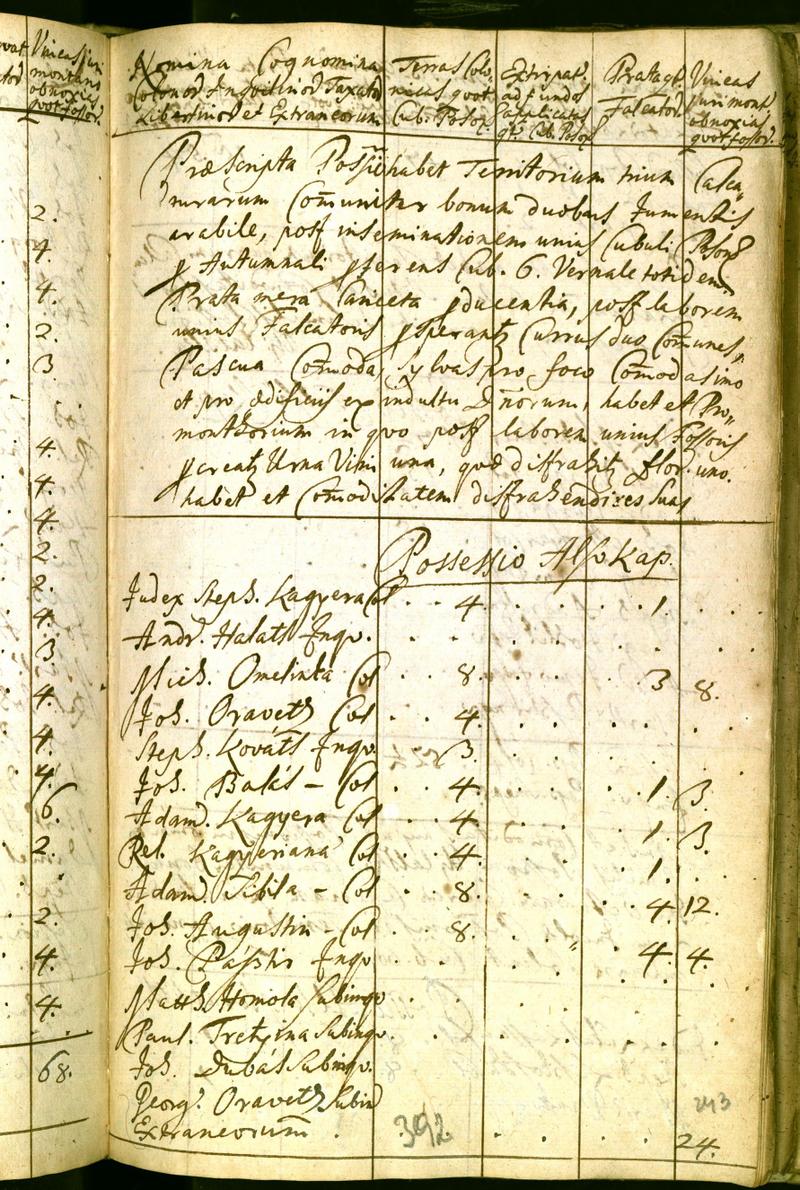 quot Vineas Juri
montano
obnoxias
quot fossor.
2.
4.
4.
2.
3
4.
4.
4.
2.
2.
4.
3
4.
4.
4.
6.
2.
2.
4.
4.
68.
Nomina Cognomina
Colonor Inquilinor Taxator
Libertinor et Extraneorum
Terras Colo,
nicas quot
Cub. Poson
Extirpat.
ad fundos
applicatas
qt. Cub. Poson
Prata qt.
Falcator.
Vineas
Juri mont.
obnoxias
quot fossor.
Præscripta Possio habet Territorium trium Calca,,
turarum Comuniter bonum duobus Jumentis
arabile, post inseminationem unius Cubuli Poson
p Autumnali pferens Cub. 6. Vernale totidem
Prata mera Cariceta pducentia, post laborem
unius Falcatoris psperant Currus duo Comunes,,
Pascua Comoda, Sylvas pro foco Comodasimo
et pro ædificiis ex indultu Dnorum, habet et Pro,,
montorium in quo post laborem unius Fossoris
pcreat Urna Vini una, quæ distrahit flor. uno.
habet et Comoditatem distrahendi res suas
Possessio Alsó Kap.
Judex Steph. Kagyera Col . . 4. . . . 1. . .
Andr. Halath Inqu. . . . . . .
Mich. Omelinka Col . . 8. . . . 3 8.
Joh. Oraveth Col . . 4. . . . . .
Steph. Kováts Inqu. . 3. . . . . .
Joh. Balás - Col . . 4. . . . 1. 3.
Adam. Kagyera Col . . 4. . . . 1. 3.
Rel. Kagyeriana Col . . 4. . . . 1. .
Adam. Sibila - Col . . 8. . . . 4. 12.
Joh. Augustin - Col . . 8. . . . 4. 4.
Joh. Inqu . . . . . .
Matth. Homola Subinqu . . . . . .
Paul. Subinqu. . . . . . .
Joh. Dubás Subinqu. . . . . . .
Georg. Oraveth Subin
243
Extraneorum . . 392 . . . . 24.